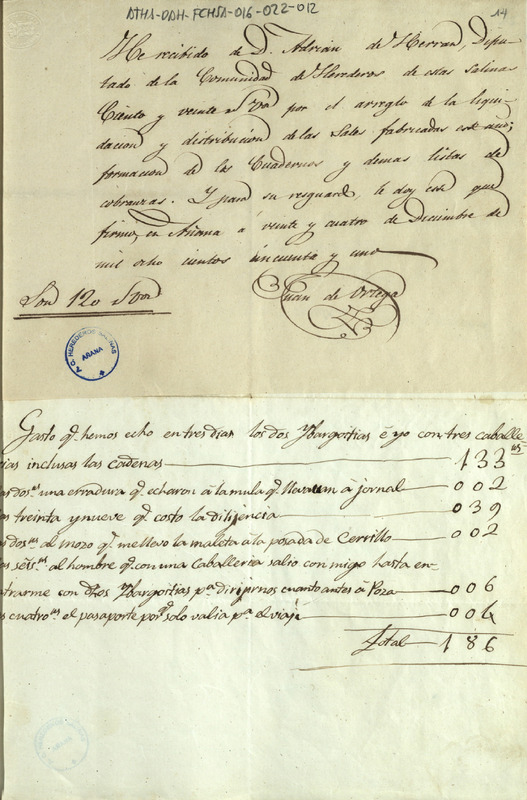 ATHA-DAH-FCHSA-016-022-012
14
He recibido de D. Adrián de Herran, Dipu-
tado de la Comunidad de Herederos de estas salinas
Ciento y veinte rs von por el arreglo de la liqui-
dacion y distribucion de las Sales fabricadas este año;
formacion de los Cuadernos y demas listas de
cobranzas. Y para su resguardo, le doy este que
firmo, en Añana á veinte y cuatro de Diciembre de
mil ocho cientos cincuenta y uno
Juan de Ortega
Son 120 rs von
Gasto q.e hemos echo en tres dias los dos Ybargoitias é yo con tres caballe
rias inclusas las cadenas 133 rs
as dos rs una erradura q.e echaron á la mula q.e llevavan á jornal 002
as treinta y nueve q.e costo la dilijencia 039
as dos rs al mozo q.e me llevo la maleta á la posada de Cerrillo 002
as séis rs al hombre q.e con una Caballeria salio con migo hasta en-
trarme con dhos Ybargoitias p.a dirijirnos cuanto antes á Poza 006
as cuatro rs el pasaporte por q.e solo valia p.a el viaje 004
Total 186